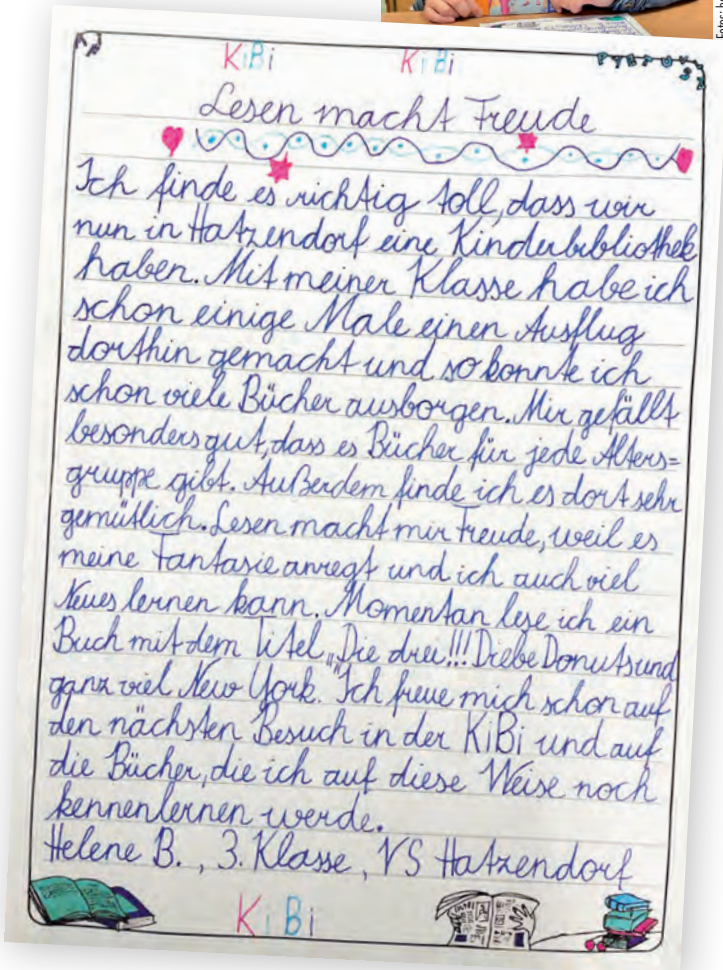 KiBi KiBi
Lesen macht Freude
Ich finde es richtig toll, dass wir
nun in Hatzendorf eine Kinderbibliothek
haben. Mit meiner Klasse habe ich
schon einige Male einen Ausflug
dorthin gemacht und so konnte ich
schon viele Bücher ausborgen. Mir gefällt
besonders gut, dass es Bücher für jede Alters=
gruppe gibt. Außerdem finde ich es dort sehr
gemütlich. Lesen macht mir Freude, weil es
meine Fantasie anregt und ich auch viel
Neues lernen kann. Momentan lese ich ein
Buch mit dem Titel „Die drei!!! Diebe Donuts und
ganz viel New York." Ich freue mich schon auf
den nächsten Besuch in der KiBi und auf
die Bücher, die ich auf diese Weise noch
kennenlernen werde.
Helene B., 3. Klasse, VS Hatzendorf
KiBi